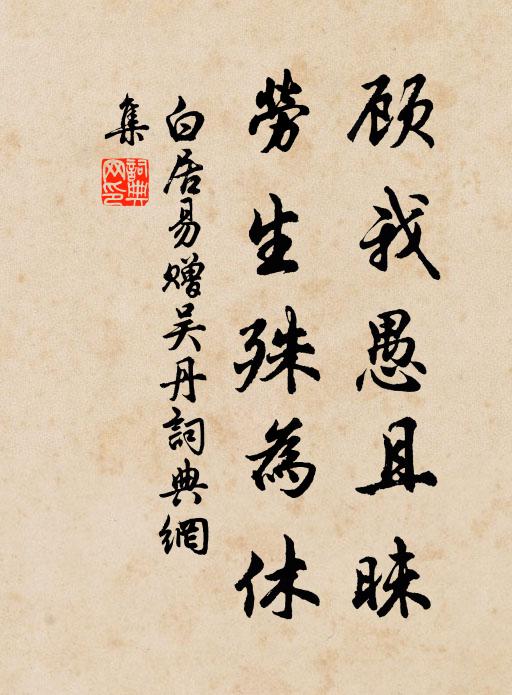 顾我愚且昧
劳生殊為休
白居易赠吴丹詞典網
集
詞典
网印